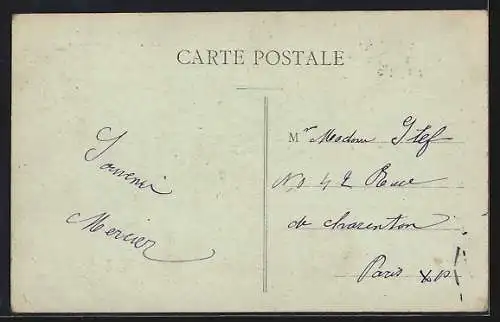 CARTE POSTALE
Souvenir
Mercier
Mr Madam
No 42 Rue
de Charenton
Paris